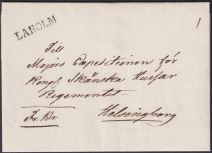 LAHOLM
Till
Majors Expeditionen för
Kongl Skånska Husar
Regementet
Fr. Br.
Helsingborg